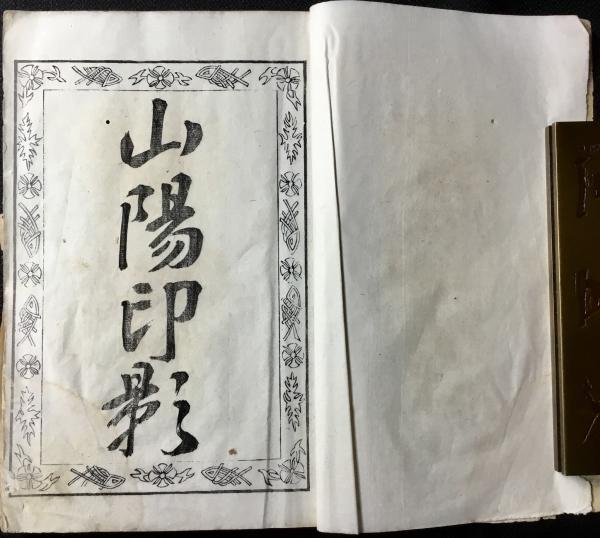 山陽印影